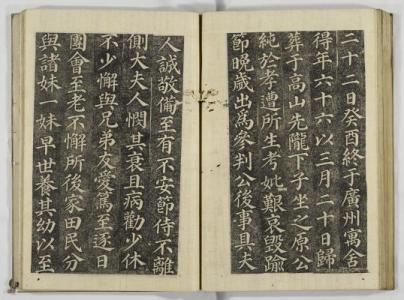 二十二日癸酉終于廣州寓舍
得年六十六以三月二十日歸
葬于高山先隴下子坐之原公
純於孝遭所生考妣艱哀毀踰
節晩歲出爲參判公後事具夫
人誠敬備至有不安節侍不離
側大夫人憫其衰且病勸少休
不少懈與兄弟友愛篤至逐日
團會至老不懈所後家田民分
與諸妹一妹早世養其幼以至